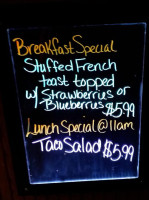 Breakfast Special
Stuffed French
toast topped
w/ Strawberries or
Blueberries $5.99
Lunch Special @ 11am
Taco Salad $5.99